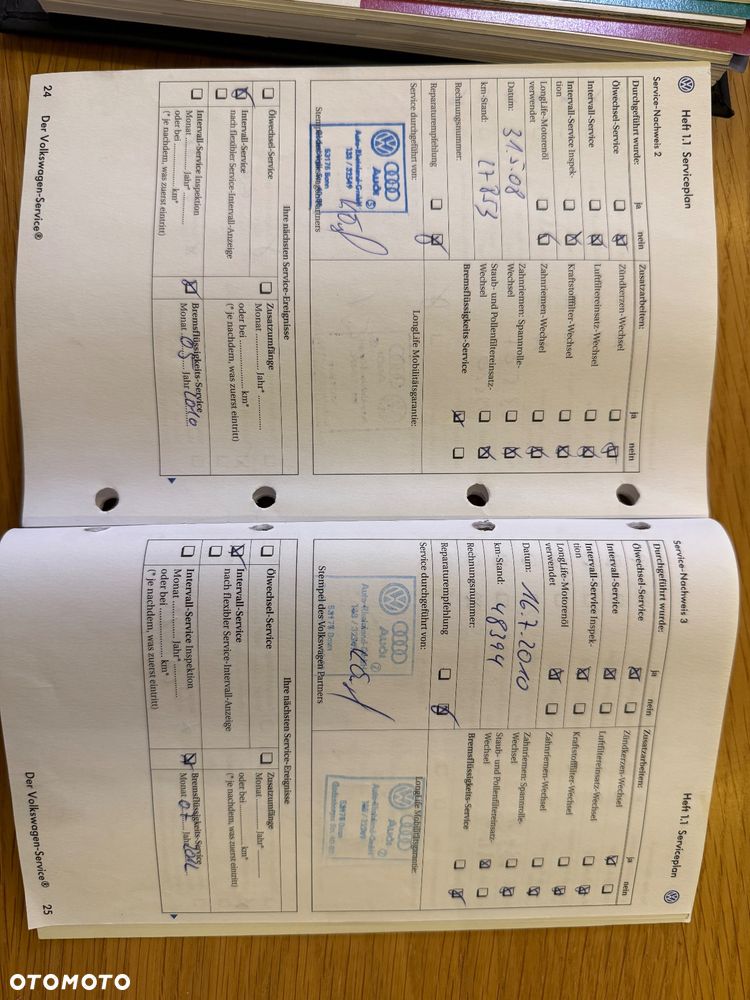 Heft 1.1 Serviceplan
Service-Nachweis 2
Durchgeführt wurde: ja nein
Ölwechsel-Service
Intervall-Service
Intervall-Service Inspek-
tion
LongLife-Motorenöl
verwendet
Datum: 31.5.08
km-Stand: 27853
Rechnungsnummer:
Reparaturempfehlung
Service durchgeführt von:
Audi
Auto-Rheinland-GmbH
53175 Bonn
Zusatzarbeiten: ja nein
Zündkerzen-Wechsel
Luftfiltereinsatz-Wechsel
Kraftstofffilter-Wechsel
Zahnriemen-Wechsel
Zahnriemen: Spannrolle-
Wechsel
Staub- und Pollenfiltereinsatz-
Wechsel
Bremsflüssigkeits-Service
LongLife Mobilitätsgarantie:
Ihre nächsten Service-Ereignisse
Ölwechsel-Service
Intervall-Service
nach flexibler Service-Intervall-Anzeige
Intervall-Service Inspektion
Monat ............ Jahr* ............
oder bei ............ km*
(* je nachdem, was zuerst eintritt)
Zusatzumfänge
Monat ............ Jahr* ............
oder bei ............ km*
(* je nachdem, was zuerst eintritt)
Bremsflüssigkeits-Service
Monat 05 Jahr 2010
24 Der Volkswagen-Service®
Heft 1.1 Serviceplan
Service-Nachweis 3
Durchgeführt wurde: ja nein
Ölwechsel-Service
Intervall-Service
Intervall-Service Inspek-
tion
LongLife-Motorenöl
verwendet
Datum: 16.7.2010
km-Stand: 48394
Rechnungsnummer:
Reparaturempfehlung
Service durchgeführt von:
Audi
53175 Bonn
Stempel des Volkswagen Partners
Zusatzarbeiten: ja nein
Zündkerzen-Wechsel
Luftfiltereinsatz-Wechsel
Kraftstofffilter-Wechsel
Zahnriemen-Wechsel
Zahnriemen: Spannrolle-
Wechsel
Staub- und Pollenfiltereinsatz-
Wechsel
Bremsflüssigkeits-Service
LongLife Mobilitätsgarantie:
Audi
Auto-Rheinland-GmbH
53175 Bonn
Ihre nächsten Service-Ereignisse
Ölwechsel-Service
Intervall-Service
nach flexibler Service-Intervall-Anzeige
Intervall-Service Inspektion
Monat ............ Jahr* ............
oder bei ............ km*
(* je nachdem, was zuerst eintritt)
Zusatzumfänge
Monat ............ Jahr* ............
oder bei ............ km*
(* je nachdem, was zuerst eintritt)
Bremsflüssigkeits-Service
Monat 07 Jahr 2012
Der Volkswagen-Service® 25
OTOMOTO